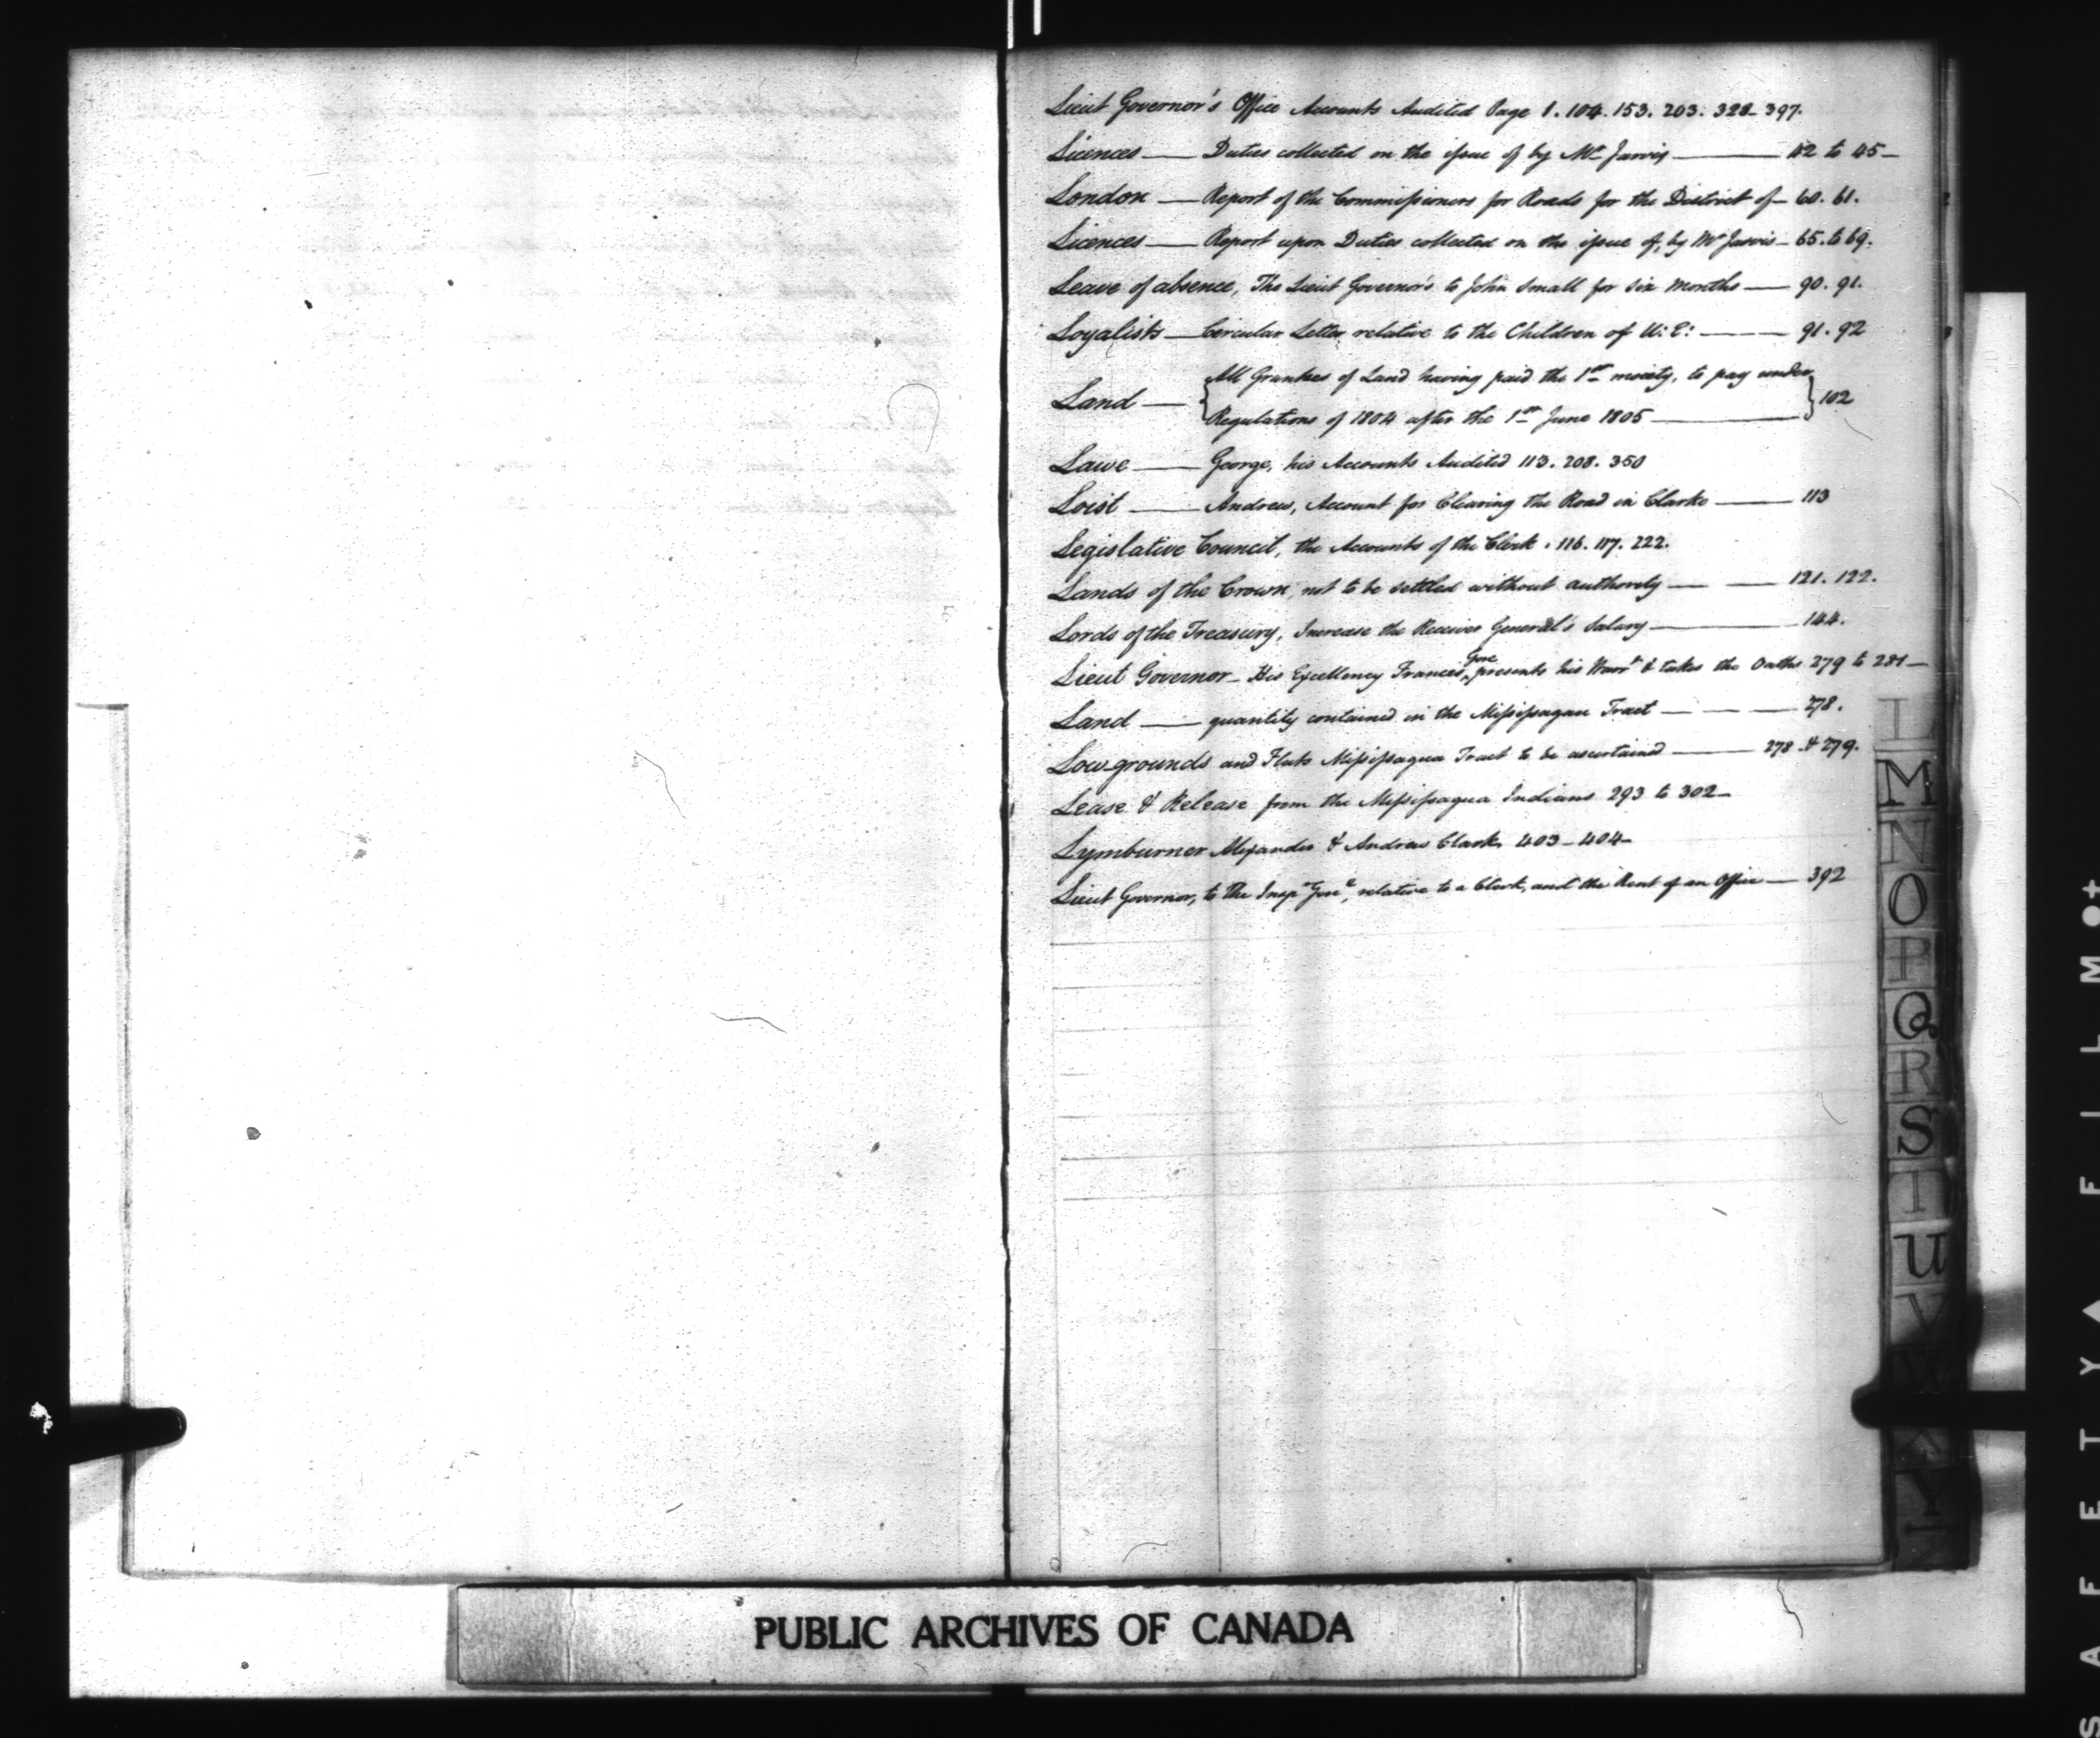 Lieut Governor's Office Accounts Audited Page 1. 104. 153. 203. 328_ 397.
Licences — Duties collected on the issue of by Mr Jarvis — 42 to 45_
London — Report of the Commissioners for Roads for the District of _ 60. 61.
Licences — Report upon Duties collected on the issue of, by Mr Jarvis _ 65. to 69.
Leave of absence, The Lieut Governor's to John Small for six Months — 90. 91.
Loyalists — Circular Letter relative to the Children of U: E: — 91. 92
All Grantees of Land having paid the 1st moiety, to pay under
Land — 102
Regulations of 1804 after the 1st June 1805 —
Lawe — George, his Accounts Audited 113. 208. 350
Loist — Andrew, Account for Clearing the Road in Clarke — 113
Legislative Council, the Accounts of the Clerk . 116. 117. 222.
Lands of the Crown, not to be settled without authority — — 121. 122.
Lords of the Treasury, Increase the Receiver General's Salary — 144.
Lieut Governor _ His Excellency Francis Gore presents his Warrt & takes the Oaths 279 to 281 _
Land — quantity contained in the Missisagua Tract — — — 278.
Low grounds and Flats Missisagua Tract to be ascertained — 278 & 279.
Lease & Release from the Missisagua Indians 293 to 302 _
Lymburner Alexander & Andrew Clark 403 _ 404 _
Lieut Governor, to the Inspr Genl, relative to a Clerk, and the Rent of an Office — 392
L
M
N
O
P
Q
R
S
T
U
V
W
X
Y
Z
PUBLIC ARCHIVES OF CANADA
SAFETY▲ FILM ●+